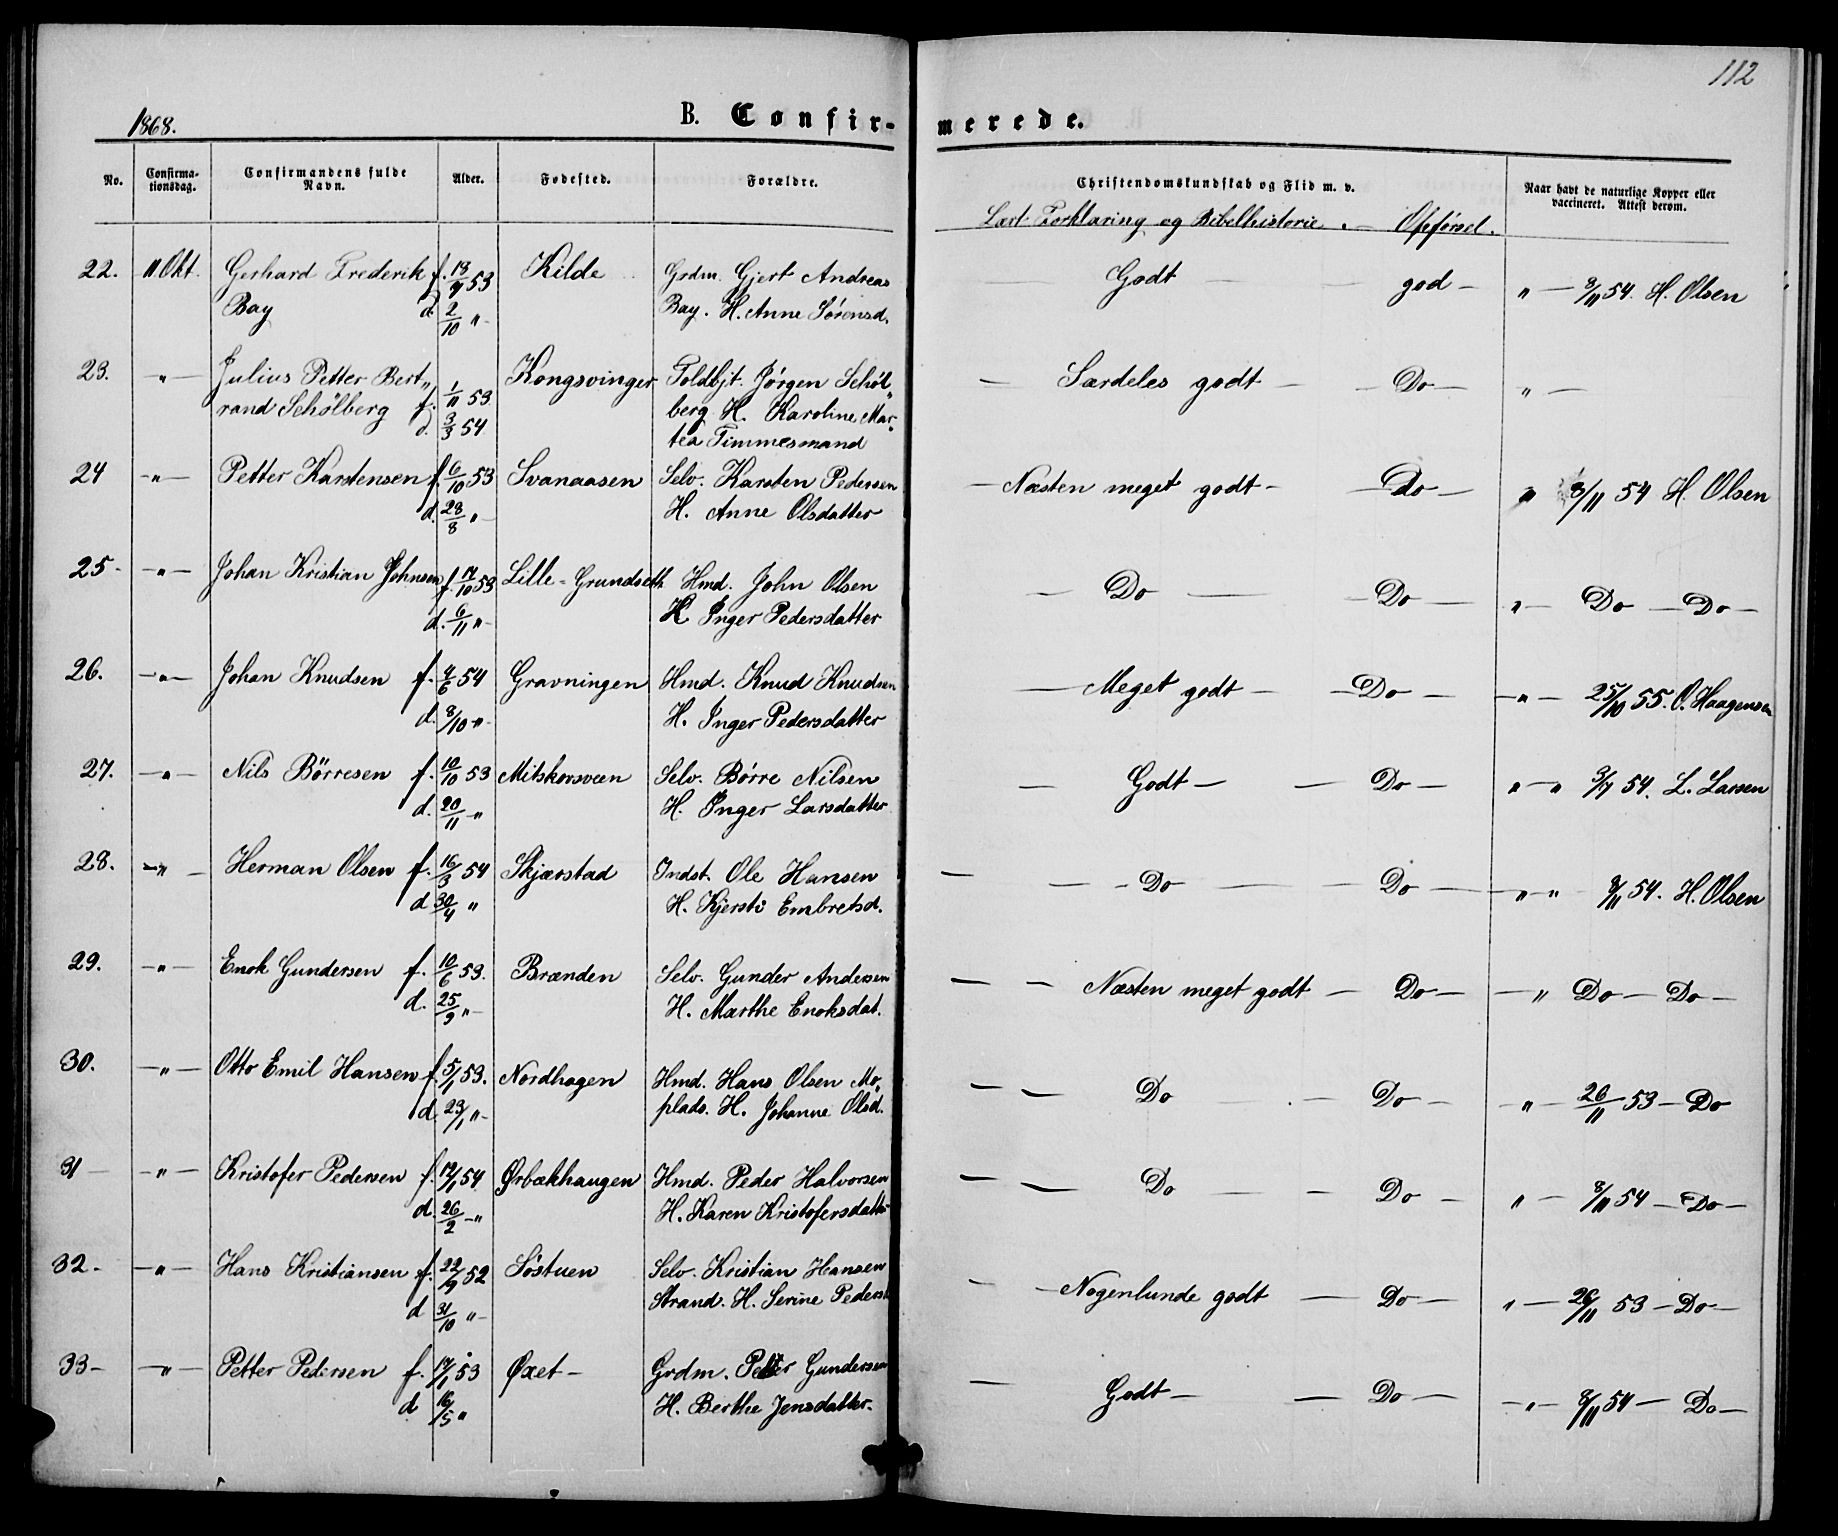 112
1868. B. Confirmerede.
No. Confirmationsdag. Confirmandens fulde Navn. Alder. Fødested. Forældre. Christendomskundskab og Flid m. v. Naar havt de naturlige Kopper eller vaccineret. Attest derom.
Læst Forklaring og Bibelhistorie. - Opførsel.
22. 11 Okt. Gerhard Frederik f. 13/9 53 Kilde Grdm. Gjert Andreas — Godt — god - " — 8/11 54. H. Olsen
Bay d. 2/10 " - Bay. H. Anne Sørensd.
23. - " - Julius Petter Bert„ f. 1/11 53 Kongsvinger Toldbjt. Jörgen Schöl„ — Særdeles godt — Do — " —
rand Schölberg d. 3/3 54 berg H. Karoline Mar„
tea Timmesmand
24 - " - Petter Karstensen f. 6/10 53 Svanaasen Selv. Karsten Pedersen — Næsten meget godt - — Do — " 8/11 54 H. Olsen
d. 28/8 " - H. Anne Olsdatter
25 - - " - Johan Kristian Johnsen f. 17/10 53 Lille - Grundseth Hmd. John Olsen — Do — — Do — " — Do — Do —
d. 6/11 " - H Inger Pedersdatter
26. - " - Johan Knudsen f. 4/6 54 Gravningen Hmd. Knud Knudsen — Meget godt — — Do — — " — 25/10 55. O. Haagensen
d. 8/10 " - H. Inger Pedersdatter
27. - " - Nils Börresen f. 10/10 53 Mitskovsveen Selv. Börre Nilsen — Godt — — Do — " — " 3/7 54. L. Larsen
d. 20/11 - " H. Inger Larsdatter
28. - " - Herman Olsen f. 16/3 54 Skjærstad Indst. Ole Hansen — — - Do — — Do — — " — " 8/11 54. H. Olsen
d 30/4 " H. Kjersti Embretsd.
29. - " - Enok Gundersen f. 10/6 53. Brænden Selv. Gunder Andersen — — Næsten meget godt — Do — — " Do — Do —
d. 25/9 " - H. Marthe Enoksdat.
30. - " - Otto Emil Hansen f. 5/1 53. Nordhagen Hmd. Hans Olsen Mo„ — — Do — — Do — - " — 26/11 53 — Do
d. 23/1 " - plads. H. Johanne Olsd.
31 - " - Kristofer Pedersen f. 19/1 54 Ørbækhaugen Hmd. Peder Halvorsen — — Do — — Do — " — 8/11 54 — Do —
d. 26/2 - " H. Karen Kristofersdatter
32. - - " - Hans Kristiansen f. 22/9 52 Söstuen Selv. Kristian Hansen — — Nogenlunde godt — Do — " — 26/11 53 — Do —
d 31/10 " - Strand. H. Serine Peders
33 - - " - Petter Pedersen f. 17/1 53 Øxet - Grdm. Petter Gundersen — Godt — — Do — — " — 8/11 54 — Do —
d 16/5 " H. Berthe Jensdatter.